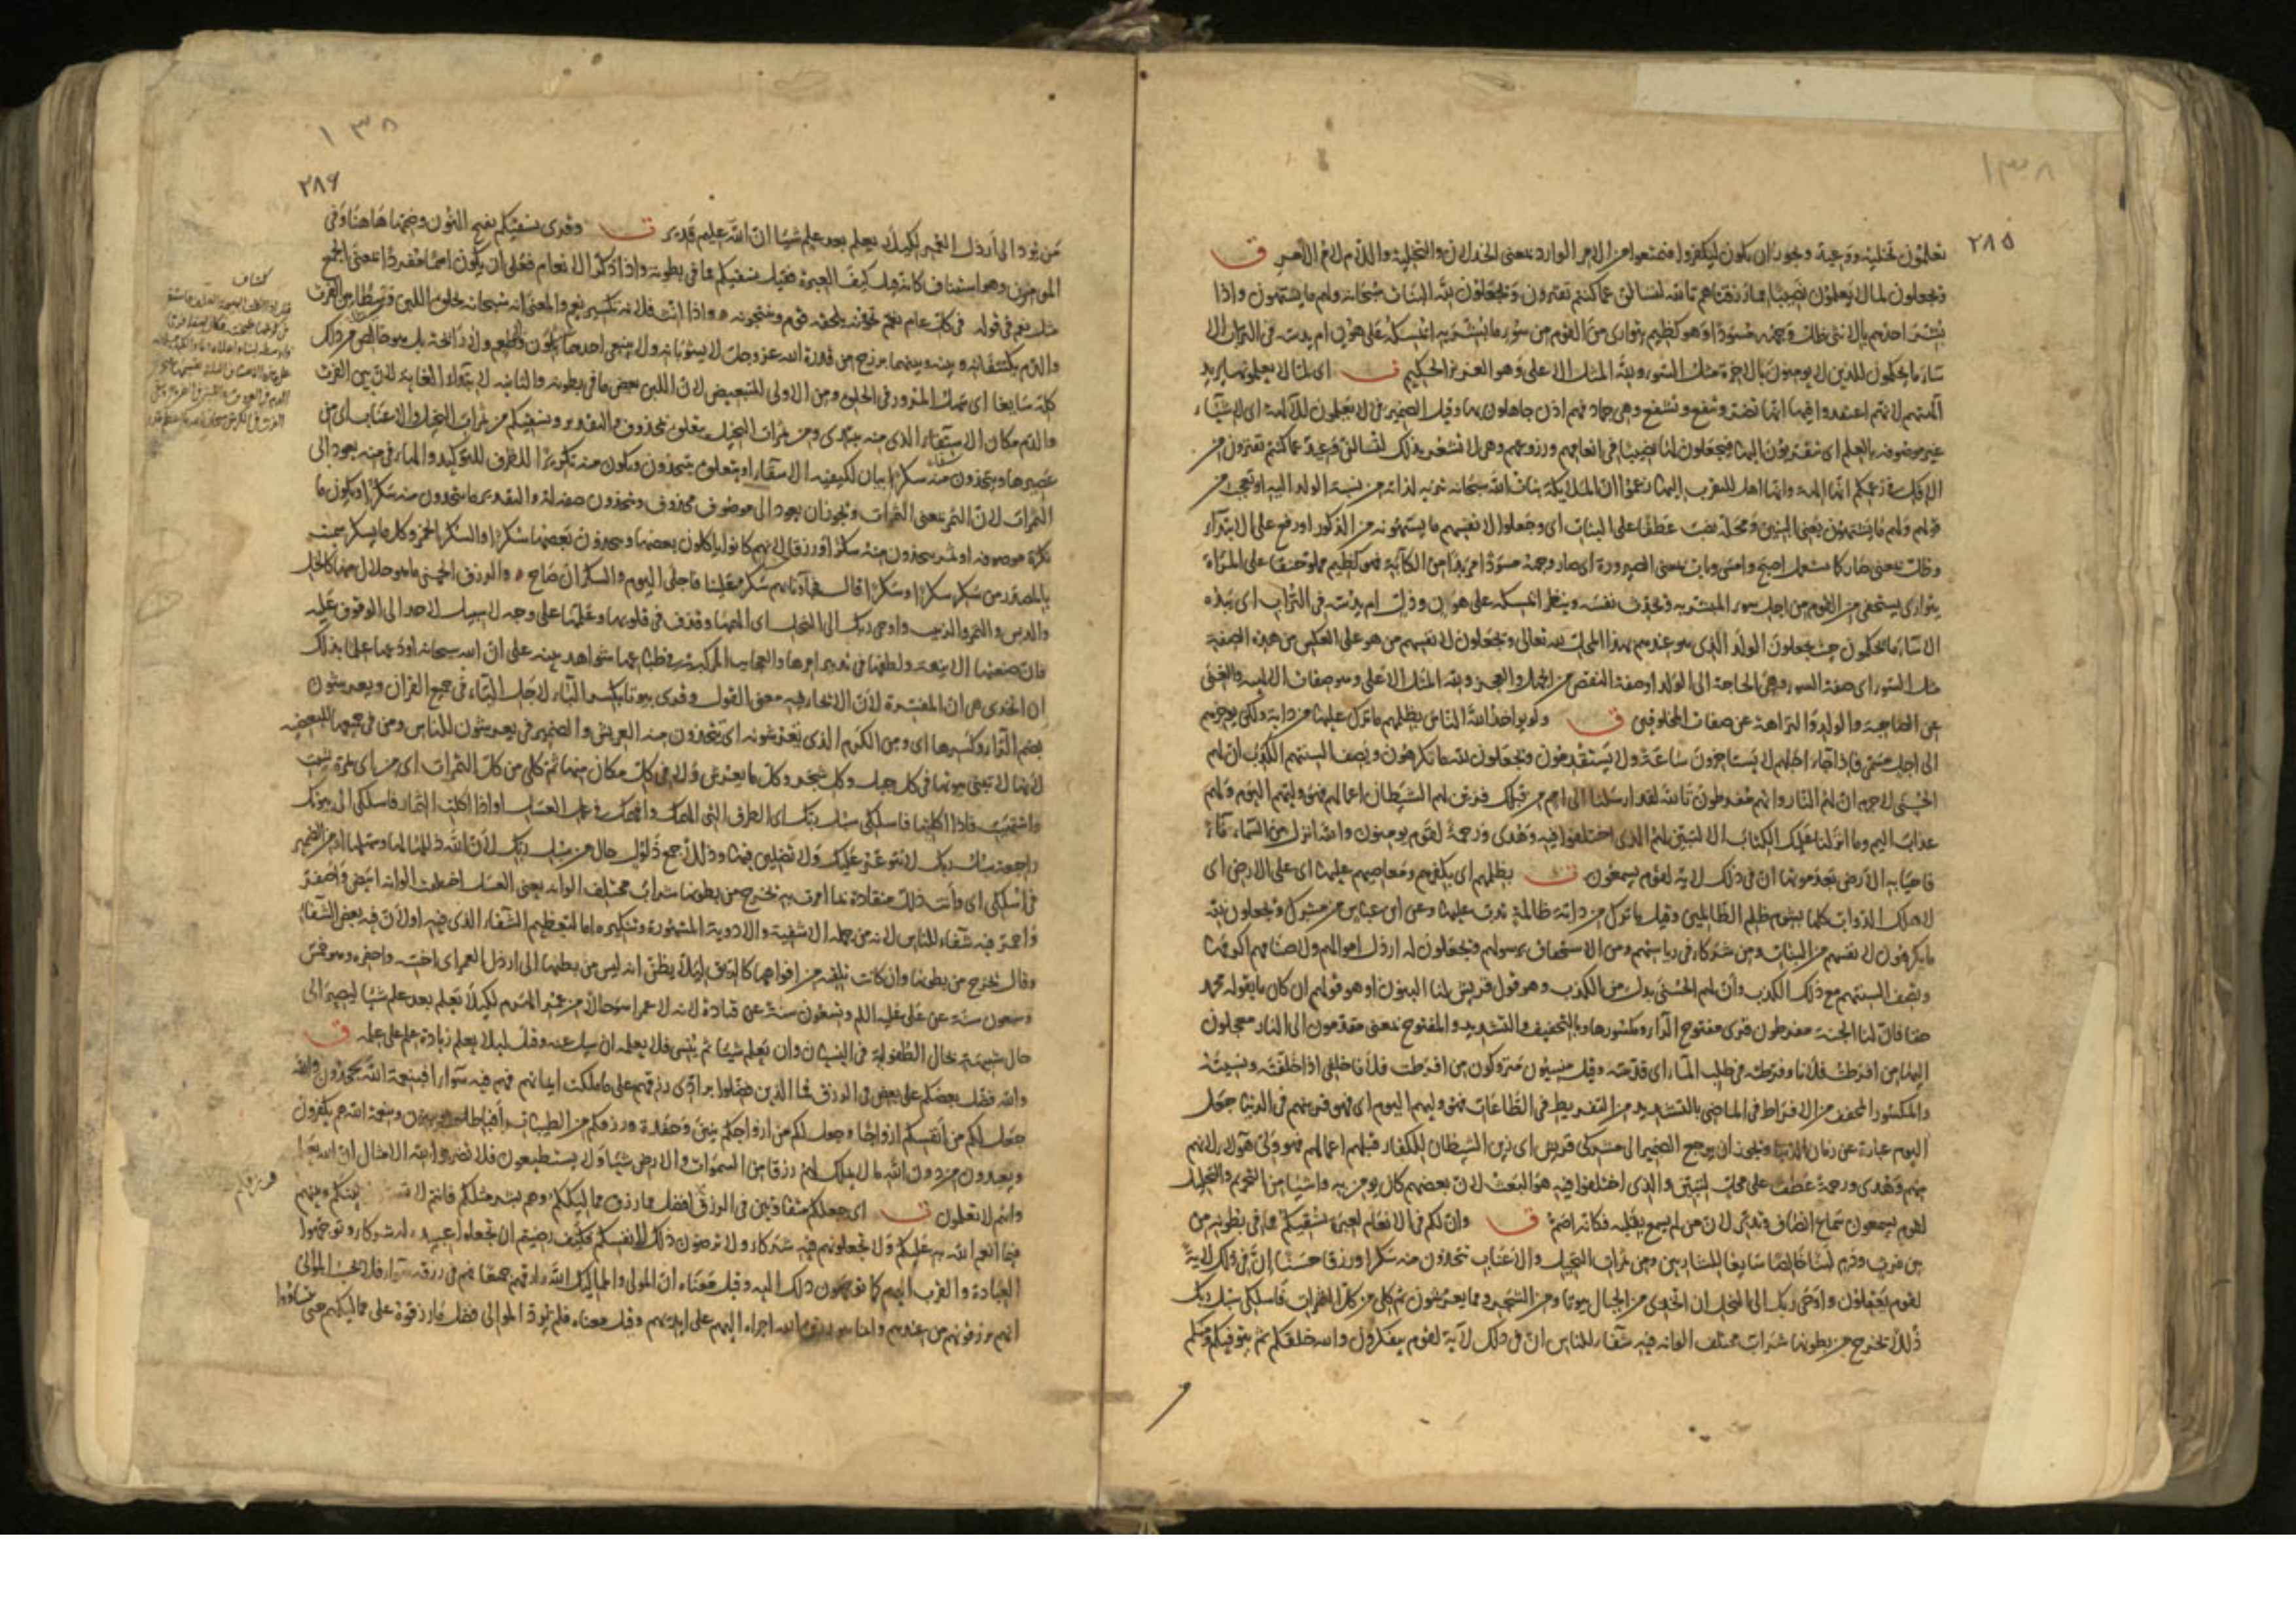 ٢٨٥
١٣٨
تعلمون تخلية ووعيد ويجوز ان يكون ليكفروا فتمتعوا من الامر الوارد بمعنى الخذلان والتخلية واللام لام الامر ق
ويجعلون لما لا يعلمون نصيبا مما رزقناهم تالله لتسالن عما كنتم تفترون ويجعلون لله البنات سبحانه ولهم ما يشتهون واذا
بشر احدهم بالانثى ظل وجهه مسودا وهو كظيم يتوارى من القوم من سوء ما بشر به ايمسكه على هون ام يدسه في التراب الا
ساء ما يحكمون للذين لا يومنون بالاخرة مثل السوء ولله المثل الاعلى وهو العزيز الحكيم ت اى لما لا يعلمونها يريد
الهتهم لانهم اعتقدوا فيها انها تضر وتنفع وتشفع وهي جماد فهم اذن جاهلون بها وقيل الضمير في لا يعلمون للالهة اى لاشياء
غير موصوفة بالعلم اى يتقربون اليها ويجعلون لها نصيبا في انعامهم وزروعهم وهي لا تشعر بذلك لتسالن وعيد عما كنتم تفترون من
الافك في زعمكم انها الهة وانها اهل للتقرب اليها زعموا ان الملايكة بنات الله سبحانه تنزيه لذاته من نسبة الولد اليه او تعجب من
قولهم ولهم ما يشتهون يعني البنين ومحله نصب عطفا على البنات اى وجعلوا لانفسهم ما يشتهونه من الذكور او رفع على الابتداء
وظل بمعنى صار كما يستعمل اصبح وامسى وبات بمعنى الصيرورة اى صار وجهه مسودا مربدا من الكآبة فهو كظيم مملو حنقا على المرأة
يتوارى يستخفى من القوم من اجل سوء المبشر به ويحدث نفسه وينظر ايمسكه على هون وذل ام يدسه في التراب اى يئده
الا ساء ما يحكمون حيث يجعلون الولد الذى هو عندهم بهذا المحل لله تعالى ويجعلون لانفسهم من هو على العكس من هذه الصفة
مثل السوء اى صفة السوء وهي الحاجة الى الولد او صفة النقص من الجهل والعجز ولله المثل الاعلى وهو صفات الالهية والغنى
عن الصاحبة والولد والنزاهة عن صفات المخلوقين ق ولو يواخذ الله الناس بظلمهم ما ترك عليها من دابة ولكن يوخرهم
الى اجل مسمى فاذا جاء اجلهم لا يستاخرون ساعة ولا يستقدمون ويجعلون لله ما يكرهون وتصف السنتهم الكذب ان لهم
الحسنى لا جرم ان لهم النار وانهم مفرطون تالله لقد ارسلنا الى امم من قبلك فزين لهم الشيطان اعمالهم فهو وليهم اليوم ولهم
عذاب اليم وما انزلنا عليك الكتاب الا لتبين لهم الذى اختلفوا فيه وهدى ورحمة لقوم يومنون والله انزل من السماء ماء
فاحيا به الارض بعد موتها ان في ذلك لاية لقوم يسمعون ت بظلمهم اى بكفرهم ومعاصيهم عليها اى على الارض اى
لاهلك الدواب كلها بشوم ظلم الظالمين وقيل ما ترك من دابة ظالمة تدب عليها وعن ابن عباس من مشرك ويجعلون لله
ما يكرهون لانفسهم من البنات ومن شركاء في رياستهم ومن الاستخفاف برسولهم ويجعلون له ارذل اموالهم ولاصنامهم اكرمها
وتصف السنتهم مع ذلك الكذب وان لهم الحسنى بدل من الكذب وهو قول قريش لنا البنون او هو قولهم ان كان ما يقوله محمد
حقا فان لنا الجنة مفرطون قرى مفتوح الراء ومكسورها وبالتخفيف والتشديد والمفتوح بمعنى مقدمون الى النار معجلون
اليها من افرطت فلانا وفرطته في طلب الماء اى قدمته وقيل منسيون متروكون من افرطت فلانا خلفي اذا خلفته ونسيته
والمكسور المخفف من الافراط في المعاصي بالتشديد من التفريط في الطاعات فهو وليهم اليوم اى فهو قرينهم في الدنيا جعل
اليوم عبارة عن زمان الدنيا ويجوز ان يرجع الضمير الى مشركي قريش اى زين الشيطان للكفار قبلهم اعمالهم فهو ولي هولاء لانهم
منهم وهدى ورحمة عطف على محل لتبين والذى اختلفوا فيه هو البعث لان بعضهم كان يومن به واشيا من التحريم والتحليل
لقوم يسمعون سماع انصاف وتدبر لان من لم يسمع بقلبه فكانه اصم ق وان لكم في الانعام لعبرة نسقيكم مما في بطونه من
بين فرث ودم لبنا خالصا سايغا للشاربين ومن ثمرات النخيل والاعناب تتخذون منه سكرا ورزقا حسنا ان في ذلك لاية
لقوم يعقلون واوحى ربك الى النحل ان اتخذى من الجبال بيوتا ومن الشجر ومما يعرشون ثم كلى من كل الثمرات فاسلكى سبل ربك
ذللا يخرج من بطونها شراب مختلف الوانه فيه شفاء للناس ان في ذلك لآية لقوم يتفكرون والله خلقكم ثم يتوفيكم ومنكم
١٣٨
٢٨٦
من يرد الى ارذل العمر لكيلا يعلم بعد علم شيا ان الله عليم قدير ت وقرى نسقيكم بفتح النون وضمها هاهنا وفى
المومنون وهو استيناف كانه قيل كيف العبرة فقيل نسقيكم مما فى بطونه واذا ذكر الانعام فعلى ان يكون اسما مفردا بمعنى الجمع
مثل نعم في قوله في كل عام نعم تحوونه يلقحه قوم وتنتجونه واذا انث فلانه تكسير نعم والمعنى انه سبحانه يخلق اللبن وسطا بين الفرث
والدم يكتنفانه وبينه وبينهما برزخ من قدرة الله عز وجل لا يشوبانه ولا يبغى احدهما بلون ولا طعم ولا رائحة بل هو خالص من ذلك
كله سايغا اى سهل المرور في الحلق ومن الاولى للتبعيض لان اللبن بعض ما في بطونه والثانية لابتداء الغاية لان بين الفرث
والدم مكان الاسقاء الذى منه يبتدى ومن ثمرات النخيل يتعلق بمحذوف والتقدير ونسقيكم من ثمرات النخيل والاعناب اى من
عصيرها وتتخذون منه سكرا بيان لكيفية الاسقاء او يتعلق بتتخذون ويكون منه تكريرا للظرف للتوكيد والهاء في منه يعود الى
الثمرات لان الثمر بمعنى الثمرات ويجوز ان يعود الى موصوف محذوف وتتخذون صفة له والتقدير ما تتخذون منه سكرا او يكون ما
نكرة موصوفة او ثمر تتخذون منه سكرا ورزقا لانهم كانوا ياكلون بعضها ويتخذون بعضها سكرا والسكر الخمر وكل ما يسكر سميت
بالمصدر من سكر سكرا وسكرا قال فجاءونا بهم سكر علينا فاجلى اليوم والسكران صاح والرزق الحسن ما هو حلال منها كالخل
والدبس والتمر والزبيب واوحى ربك الى النحل اى الهمها وقذف في قلوبها وعلمها على وجه لا سبيل لاحد الى الوقوف عليه
فان صنعتها الانيقة ولطفها في تدبير امرها والعجايب المركبة في طباعها شواهد بينة على ان الله سبحانه اودعها علما بذلك
ان اتخذى هى ان المفسرة لان الايحاء فيه معنى القول وقرى بيوتا بكسر الباء لاجل الياء في جميع القران ويعرشون
بضم الراء وكسرها اى ومن الكرم الذى يعرشونه اى يتخذون منه العريش والضمير في يعرشون للناس ومن في جميعها للتبعيض
لانها لا تبنى بيوتها في كل جبل وكل شجر وكل ما يعرش ولا في كل مكان منها ثم كلى من كل الثمرات اى من اى ثمرة شئت
واشتهيت فاذا اكلتها فاسلكى سبل ربك اى الطرق التى الهمك وافهمك في عمل العسل او اذا اكلت الثمار فاسلكى الى بيوتك
راجعة سبل ربك لا تتوعر عليك ولا تضلين فيها وذللا جمع ذلول حال من سبل ربك لان الله ذللها لها وسهلها او من الضمير
في اسلكى اى وانت ذلل منقادة لما امرت به يخرج من بطونها شراب مختلف الوانه يعني العسل اختلفت الوانه ابيض واصفر
واحمر فيه شفاء للناس لانه من جملة الاشفية والادوية المشهورة وتنكيره اما لتعظيم الشفاء الذى فيه او لان فيه بعض الشفاء
وقال يخرج من بطونها وان كانت تلقيه من افواهها كالريق ليلا يظن انه ليس من بطنها الى ارذل العمر اى اخسه واحقره وهو خمس
وسبعون سنة عن على عليه السلم وتسعون سنة عن قتادة لانه لا عمر اسوء حالا من عمر الهرم لكيلا يعلم بعد علم شيا ليصير الى
حال شبيهة بحال الطفولية في النسيان وان يعلم شيا ثم ينسى فلا يعلمه ان سيل عنه وقيل ليلا يعلم زيادة علم على علمه ق
والله فضل بعضكم على بعض في الرزق فما الذين فضلوا برادى رزقهم على ما ملكت ايمانهم فهم فيه سواء افبنعمة الله يجحدون والله
جعل لكم من انفسكم ازواجا وجعل لكم من ازواجكم بنين وحفدة ورزقكم من الطيبات افبالباطل يومنون وبنعمة الله هم يكفرون
ويعبدون من دون الله ما لا يملك لهم رزقا من السموات والارض شيا ولا يستطيعون فلا تضربوا لله الامثال ان الله يعلم
وانتم لا تعلمون ت اى جعلكم متفاوتين في الرزق افضل مما رزق مماليككم وهم بشر مثلكم فانتم لا بينكم وبينهم
فيما انعم الله به عليكم ولا تجعلونهم فيه شركاء ولا ترضون ذلك لانفسكم فكيف رضيتم ان تجعلوا عبيده له شركاء وتوجهوا
العبادة والقرب اليهم كما توجهون ذلك اليه وقيل معناه ان الموالى والمماليك الله رازقهم جميعا فهم في رزقه سواء فلا يحسب الموالى
انهم يرزقونهم من عندهم وانما هو رزق الله اجراه اليهم على ايديهم وقيل معناه فلم يرد الموالى فضل ما رزقوه على مماليكهم حتى تساووا
كشاف